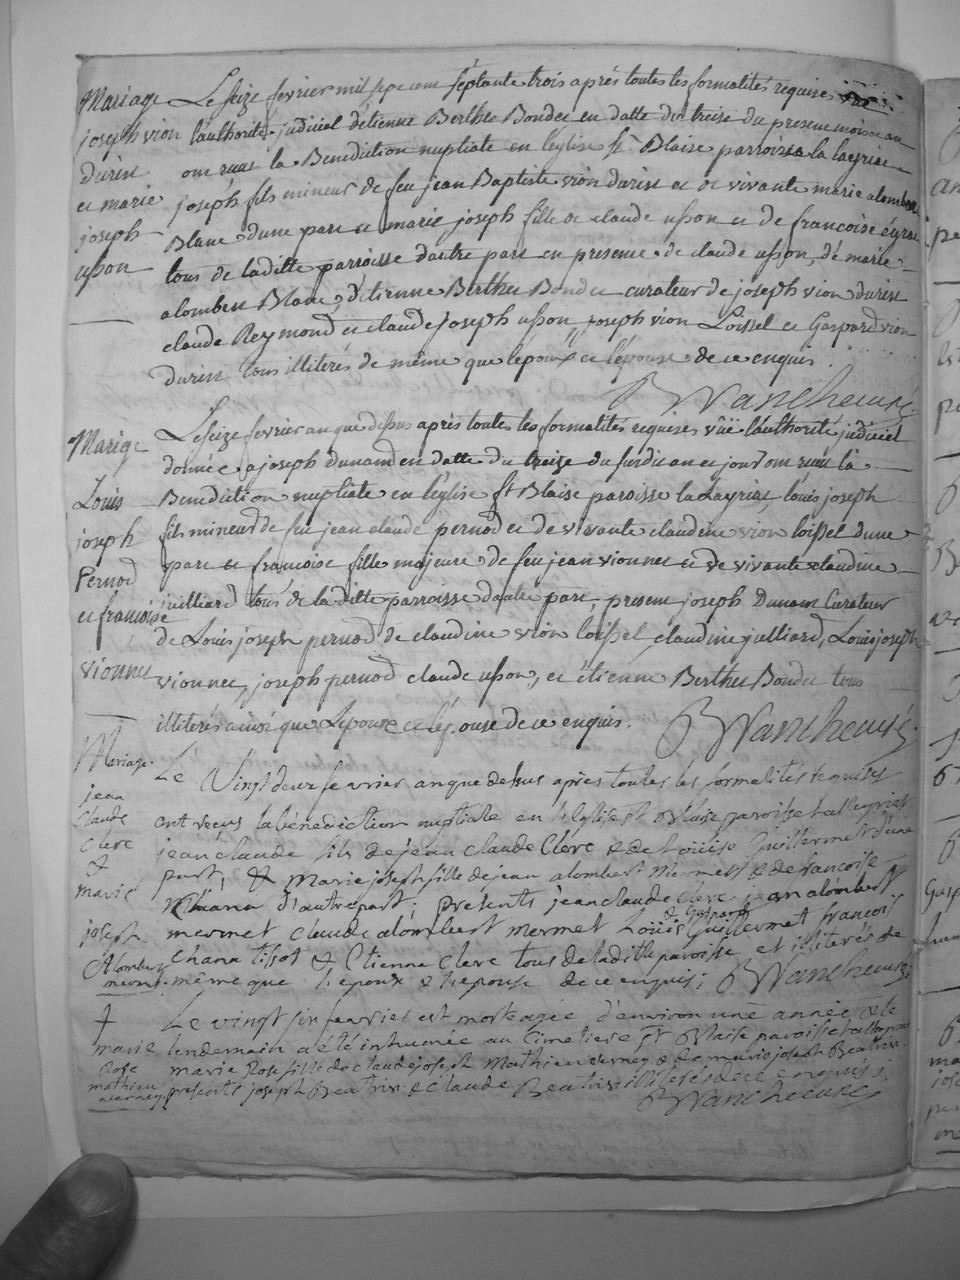 Mariage
joseph vion
durin
et marie
joseph
usson
Le seize fevrier mil sept cent septante trois après toutes les formalités requises
l'authorité judiciel d'étienne Berthet Bondet en datte du treize du present mois et an
ont reçu la Benediction nuptiale en l'église St Blaise parroisse la layriat
joseph fils mineur de feu jean Baptiste vion durin et de vivante marie alombert
Blanc d'une part et marie joseph fille de claude usson et de francoise
tous de la ditte parroisse d'autre part en presence de claude usson, de marie
alombert Blanc, d'étienne Berthet Bondet curateur de joseph vion durin
claude Reymond et claude joseph usson joseph vion Loissel et Gaspard vion
durin tous illiterés de même que l'époux et l'épouse de ce enquis
Mariage
Louis
joseph
Pernod
et francoise
vionnet
Le seize fevrier an que dessus après toutes les formalités requises vüe l'authorité judiciel
donnée a joseph Dunand en datte du treize du susdit an et jour ont reçu la
Benediction nuptiale en l'église St Blaise paroisse la Layriat, louis joseph
fils mineur de feu jean claude pernod et de vivante claudine vion loissel d'une
part et francoise fille majeure de feu jean vionnet et de vivante claudine
juilliard tous de la ditte parroisse d'autre part, present joseph Dunant Curateur
de Louis joseph pernod, de claudine vion loissel, claudine julliard, Louis joseph
vionnet, joseph pernod claude usson, et étienne Berthet Bondet tous
illiterés ainsi que L'epoux et l'épouse de ce enquis.
Mariage
jean
Claude
Clerc
et
marie
joseph
Alombert
mermet
Le Vingt deux fevrier an que dessus après toutes les formalités requises
ont reçus la bénédiction nuptiale en l'Eglise St Blaise paroisse
jean claude fils de jean claude Clerc et de Louise Guillermet d'une
part, et Marie joseph fille de jean alombert Mermet et de francoise
d'autre part; présents jean claude clerc jean alombert
mermet claude alombert mermet Louis et Gaspard Guillermet francois
Chana tissot et Etienne Clerc tous de la ditte paroisse et illiterés de
même que l'epoux et l'epouse de ce enquis;
†
marie
Rose
mathieu
Le vingt six fevrier est morte agée d'environ une année et le
lendemain a été inhumée au Cimetiere St Blaise paroisse
marie Rose fille de claude joseph Mathieu et de marie joseph Beatrix
presents joseph Beatrix et claude Beatrix illiterés de ce enquis